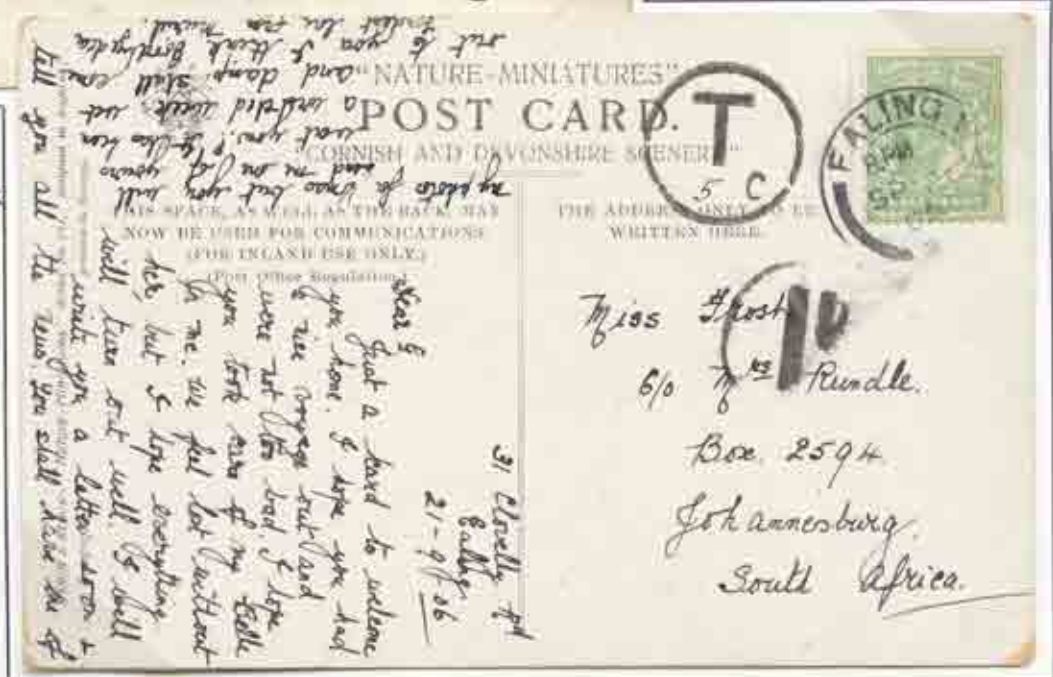 "NATURE-MINIATURES"
POST CARD.
"CORNISH AND DEVONSHIRE SCENERY"
THIS SPACE, AS WELL AS THE BACK, MAY
NOW BE USED FOR COMMUNICATIONS
(FOR INLAND USE ONLY.)
(Post Office Regulation.)
THE ADDRESS ONLY TO BE
WRITTEN HERE.
T
5 C
EALING
PM
SP
1D
Miss Frost
c/o Mrs Rundle.
Box. 2594.
Johannesburg.
South Africa.
31 Clovelly Rd
Ealing.
21-9-06
Dear E
Just a card to welcome
you home. I hope you had
a nice voyage out and
were not too bad. I hope
you took care of my
for me. we feel lost without
her, but I hope everything
will turn out well. I will
write you a letter soon &
tell you all the news. You shall have one of
my photos for but you will
send me one of yours
wont you? It has been
a wretched week: wet
and damp. shall come
out to you I think
Fondest love from